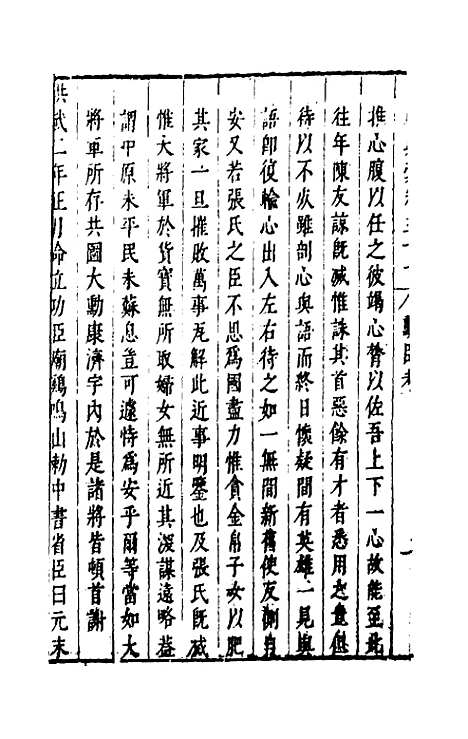 推心腹以任之彼竭心膂以佐吾上下一心故能至此
往年陳友諒旣滅惟誅其首惡餘有才者悉用之豈但
待以不疾雖剖心與語而終日懷疑間有英雄一見與
語卽復輸心出入左右待之如一無間新舊使反側自
安又若張氏之臣不思爲國盡力惟貪金帛子女以肥
其家一旦摧敗萬事瓦解此近事明鑒也及張氏旣滅
惟大將軍於貨寶無所取婦女無所近其深謀遠略益
謂中原未平民未蘇息豈可遽恃爲安乎爾等當如大
將軍所存共圖大勳康濟宇內於是諸將皆頓首謝
洪武二年正月命立功臣廟鷄鳴山勅中書省臣曰元末